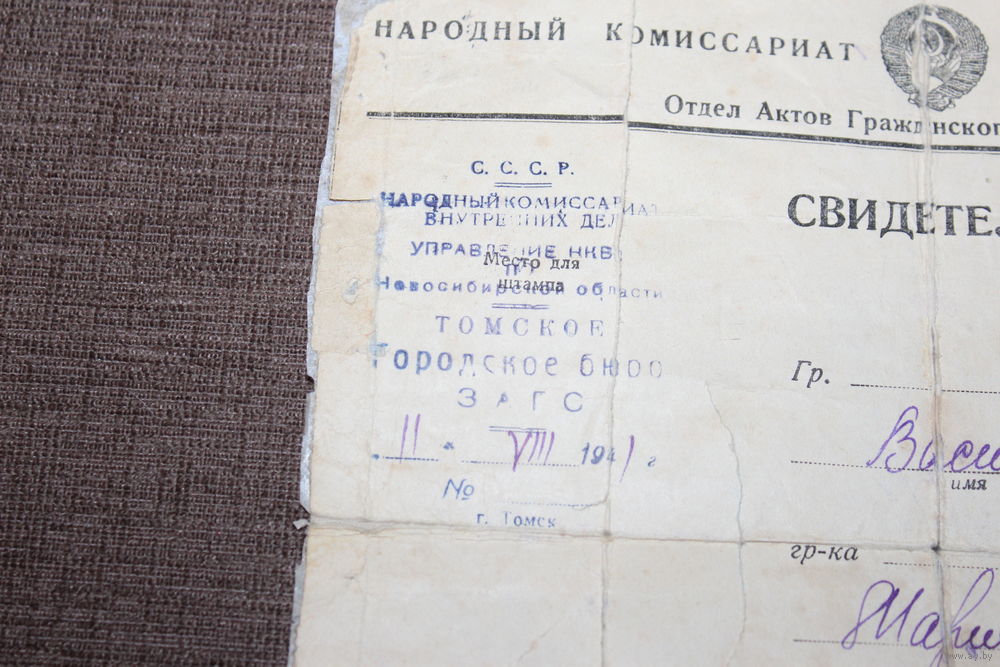 НАРОДНЫЙ КОМИССАРИАТ
Отдел Актов Гражданского
С. С. С. Р.
НАРОДНЫЙ КОМИССАРИАТ
ВНУТРЕННИХ ДЕЛ
УПРАВЛЕНИЕ НКВД
Место для
штампа
Новосибирской области
ТОМСКОЕ
Городское бюро
ЗАГС
11 " VIII 1941 г
№
г. Томск
СВИДЕТЕЛ
Гр.
Васи
имя
гр-ка
Мари
www.ay.by